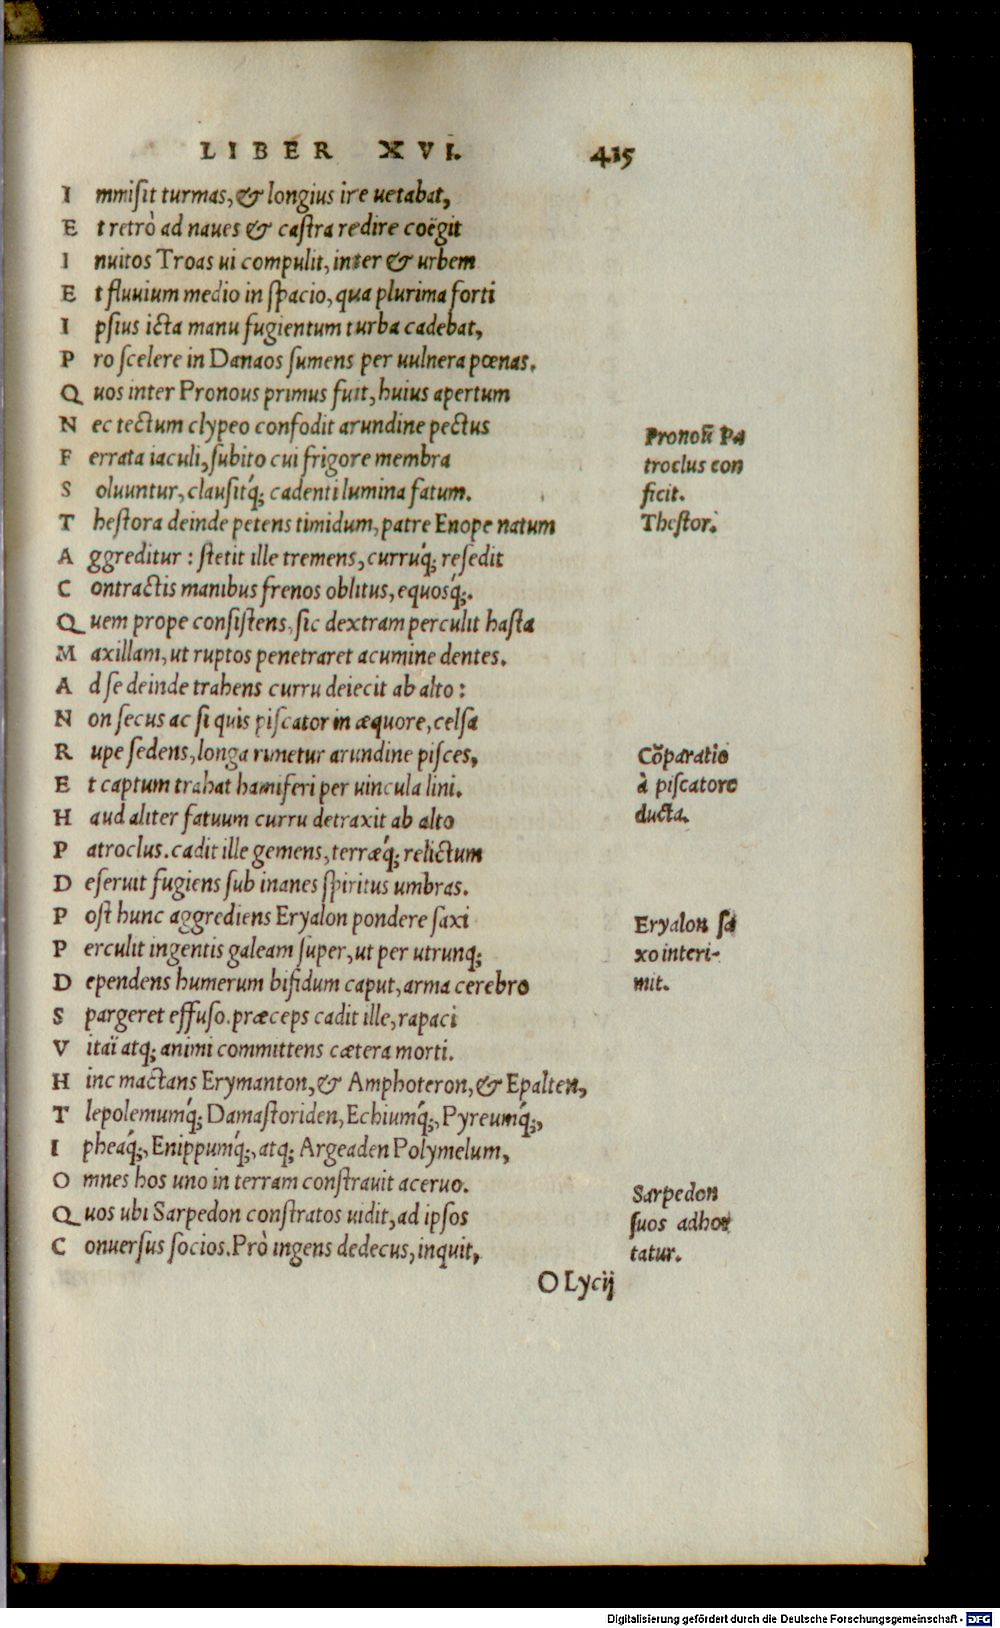 LIBER XVI. 415
Immisit turmas, & longius ire uetabat,
Et retrò ad naues & castra redire coëgit
Inuitos Troas ui compulit, inter & urbem
Et fluuium medio in spacio, qua plurima forti
Ipsius icta manu fugientum turba cadebat,
Pro scelere in Danaos sumens per uulnera pœnas.
Quos inter Pronous primus fuit, huius apertum
Nec tectum clypeo confodit arundine pectus
Ferrata iaculi, subito cui frigore membra
Soluuntur, clausitq́; cadenti lumina fatum.
Thestora deinde petens timidum, patre Enope natum
Aggreditur: stetit ille tremens, curruq́; resedit
Contractis manibus frenos oblitus, equosq́;.
Quem prope consistens, sic dextram perculit hasta
Maxillam, ut ruptos penetraret acumine dentes.
Ad se deinde trahens curru deiecit ab alto:
Non secus ac si quis piscator in æquore, celsa
Rupe sedens, longa rimetur arundine pisces,
Et captum trahat hamiferi per uincula lini.
Haud aliter fatuum curru detraxit ab alto
Patroclus. cadit ille gemens, terræq́; relictum
Deseruit fugiens sub inanes spiritus umbras.
Post hunc aggrediens Eryalon pondere saxi
Perculit ingentis galeam super, ut per utrunq;
Dependens humerum bifidum caput, arma cerebro
Spargeret effuso. præceps cadit ille, rapaci
Vitaï atq; animi committens cætera morti.
Hinc mactans Erymanton, & Amphoteron, & Epalten,
Tlepolemumq́; Damastoriden, Echiumq́;, Pyreumq́;,
Ipheaq́;, Enippumq́;, atq; Argeaden Polymelum,
Omnes hos uno in terram constrauit aceruo.
Quos ubi Sarpedon constratos uidit, ad ipsos
Conuersus socios. Prò ingens dedecus, inquit,
O Lycij
Pronoũ Pa
troclus con
ficit.
Thestor.
Cõparatio
à piscatore
ducta.
Eryalon sa
xo interi-
mit.
Sarpedon
suos adhor
tatur.
Digitalisierung gefördert durch die Deutsche Forschungsgemeinschaft - DFG